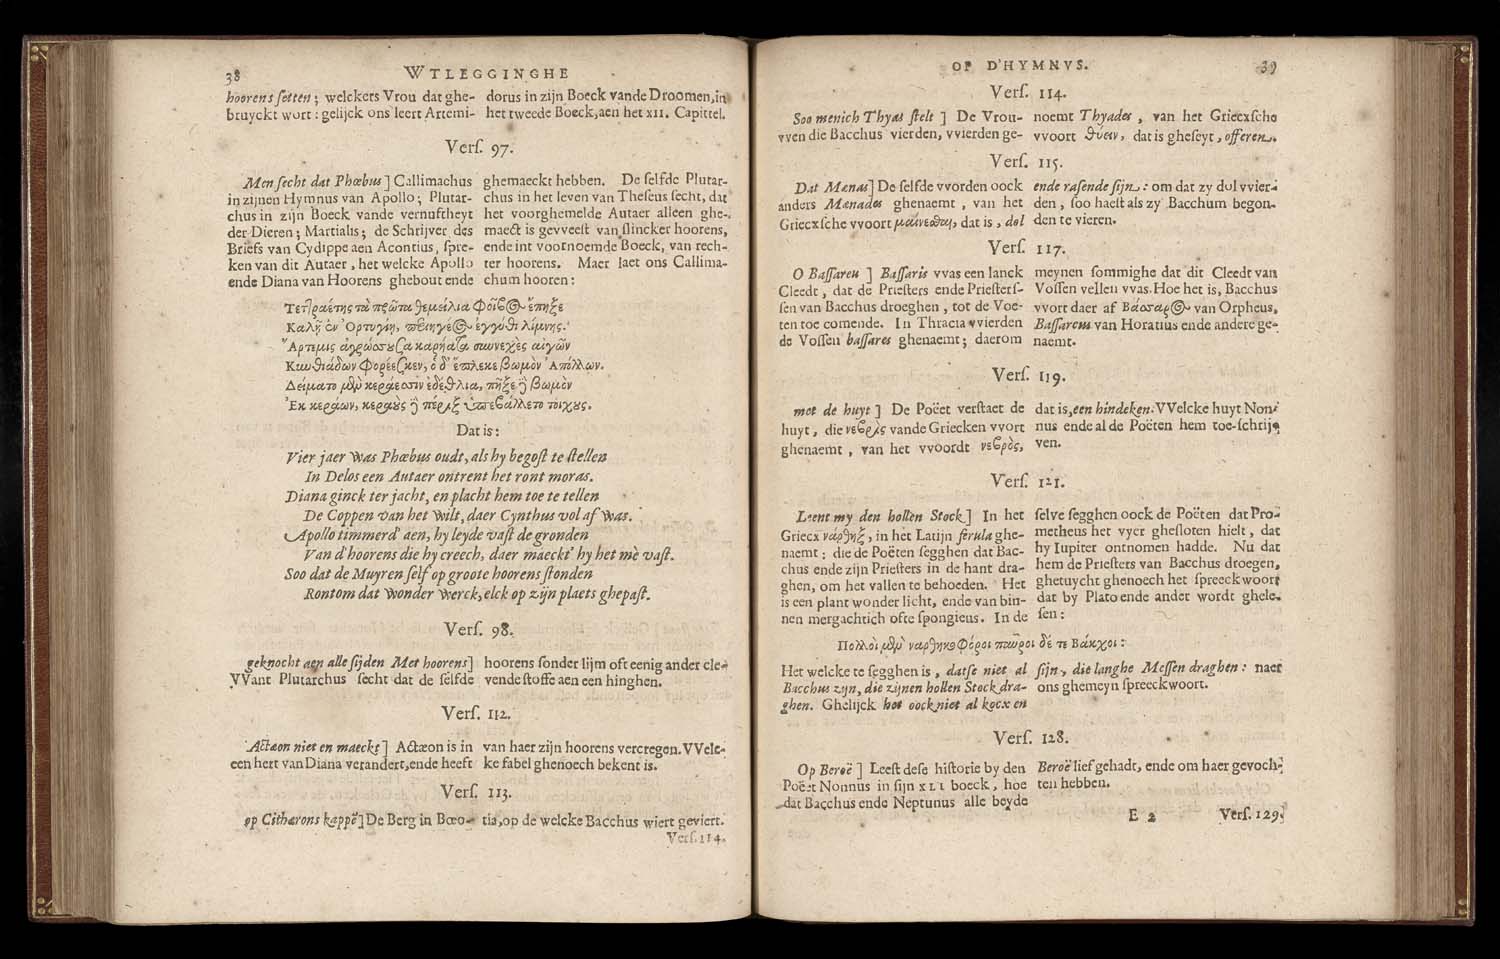 38 WTLEGGINGHE
hoorens setten ; welckers Vrou dat ghe-
bruyckt wort : gelijck ons leert Artemi-
dorus in zijn Boeck vande Droomen, in
het tweede Boeck, aen het XII. Capittel.
Vers. 97.
Men secht dat Phœbus ] Callimachus
in zijnen Hymnus van Apollo ; Plutar-
chus in zijn Boeck vande vernuftheyt
der Dieren ; Martialis ; de Schrijver des
Briefs van Cydippe aen Acontius, spre-
ken van dit Autaer, het welcke Apollo
ende Diana van Hoorens ghebout ende
ghemaeckt hebben. De selfde Plutar-
chus in het leven van Theseus secht, dat
het voorghemelde Autaer alleen ghe-
maect is gevveest van slincker hoorens,
ende int voornoemde Boeck, van rech-
ter hoorens. Maer laet ons Callima-
chum hooren :
Τετραέτης τὰ πρῶτα θεμείλια Φοῖβος ἔπηξε
Καλῇ ἐν Ὀρτυγίῃ, περιηγέος ἐγγύθι λίμνης.
Ἄρτεμις ἀγρώσσουσα καρήατα συνεχὲς αἰγῶν
Κυνθιάδων φορέεσκεν, ὁ δ' ἔπλεκε βωμὸν Ἀπόλλων.
Δείματο μὲν κεράεσσιν ἐδέθλια, πῆξε δὲ βωμὸν
Ἐκ κεράων, κεραοὺς δὲ πέριξ ὑπεβάλλετο τοίχους.
Dat is :
Vier jaer was Phœbus oudt, als hy begost te stellen
In Delos een Autaer ontrent het ront moras.
Diana ginck ter jacht, en placht hem toe te tellen
De Coppen van het wilt, daer Cynthus vol af was.
Apollo timmerd' aen, hy leyde vast de gronden
Van d'hoorens die hy creech, daer maeckt' hy het mè vast.
Soo dat de Muyren self op groote hoorens stonden
Rontom dat wonder werck, elck op zijn plaets ghepast.
Vers. 98.
geknocht aen alle sijden Met hoorens]
VVant Plutarchus secht dat de selfde
hoorens sonder lijm oft eenig ander cle-
vende stoffe aen een hinghen.
Vers. 112.
Actæon niet en maeckt ] Actæon is in
een hert van Diana verandert, ende heeft
van haer zijn hoorens vercregon. VVelc-
ke fabel ghenoech bekent is.
Vers. 113.
op Cithærons kappe] De Berg in Bœo-
tia, op de welcke Bacchus wiert geviert.
Vers. 114.
OP D'HYMNVS. 39
Vers. 114.
Soo menich Thyas stelt ] De Vrou-
vven die Bacchus vierden, vvierden ge-
noemt Thyades , van het Griecxsche
vvoort θύειν, dat is gheseyt, offeren.
Vers. 115.
Dat Mænas] De selfde vvorden oock
anders Mænades ghenaemt , van het
Griecxsche vvoort μαίνεσθαι, dat is , dol
ende rasende sijn : om dat zy dul vvier-
den , soo haest als zy Bacchum begon-
den te vieren.
Vers. 117.
O Bassareu ] Bassaris vvas een lanck
Cleedt , dat de Priesters ende Priesters-
sen van Bacchus droeghen , tot de Voe-
ten toe comende. In Thracia vvierden
de Vossen bassares ghenaemt ; daerom
meynen sommighe dat dit Cleedt van
Vossen vellen vvas. Hoe het is, Bacchus
vvort daer af Βάσσαρος van Orpheus,
Bassareus van Horatius ende andere ge-
naemt.
Vers. 119.
met de huyt ] De Poëet verstaet de
huyt , die νεβρὶς vande Griecken vvort
ghenaemt , van het vvoordt νεβρὸς,
dat is, een hindeken. VVelcke huyt Non-
nus ende al de Poëten hem toe-schrij-
ven.
Vers. 121.
Leent my den hollen Stock] In het
Griecx νάρθηξ, in het Latijn ferula ghe-
naemt : die de Poëten segghen dat Bac-
chus ende zijn Priesters in de hant dra-
ghen, om het vallen te behoeden. Het
is een plant wonder licht, ende van bin-
nen mergachtich ofte spongieus. In de
selve segghen oock de Poëten dat Pro-
metheus het vyer ghesloten hielt , dat
hy Iupiter ontnomen hadde. Nu dat
hem de Priesters van Bacchus droegen,
ghetuycht ghenoech het spreeckwoort
dat by Plato ende ander wordt ghele-
sen :
Πολλοὶ μὲν ναρθηκοφόροι παῦροι δέ τε Βάκχοι :
Het welcke te segghen is , datse niet al
Bacchus zijn, die zijnen hollen Stock dra-
ghen. Ghelijck het oock niet al kocx en
sijn, die langhe Messen draghen : naer
ons ghemeyn spreeckwoort.
Vers. 128.
Op Beroë ] Leest dese historie by den
Poëet Nonnus in sijn XLI boeck , hoe
dat Bacchus ende Neptunus alle beyde
Beroë lief gehadt, ende om haer gevoch-
ten hebben.
E 2 Vers. 129.